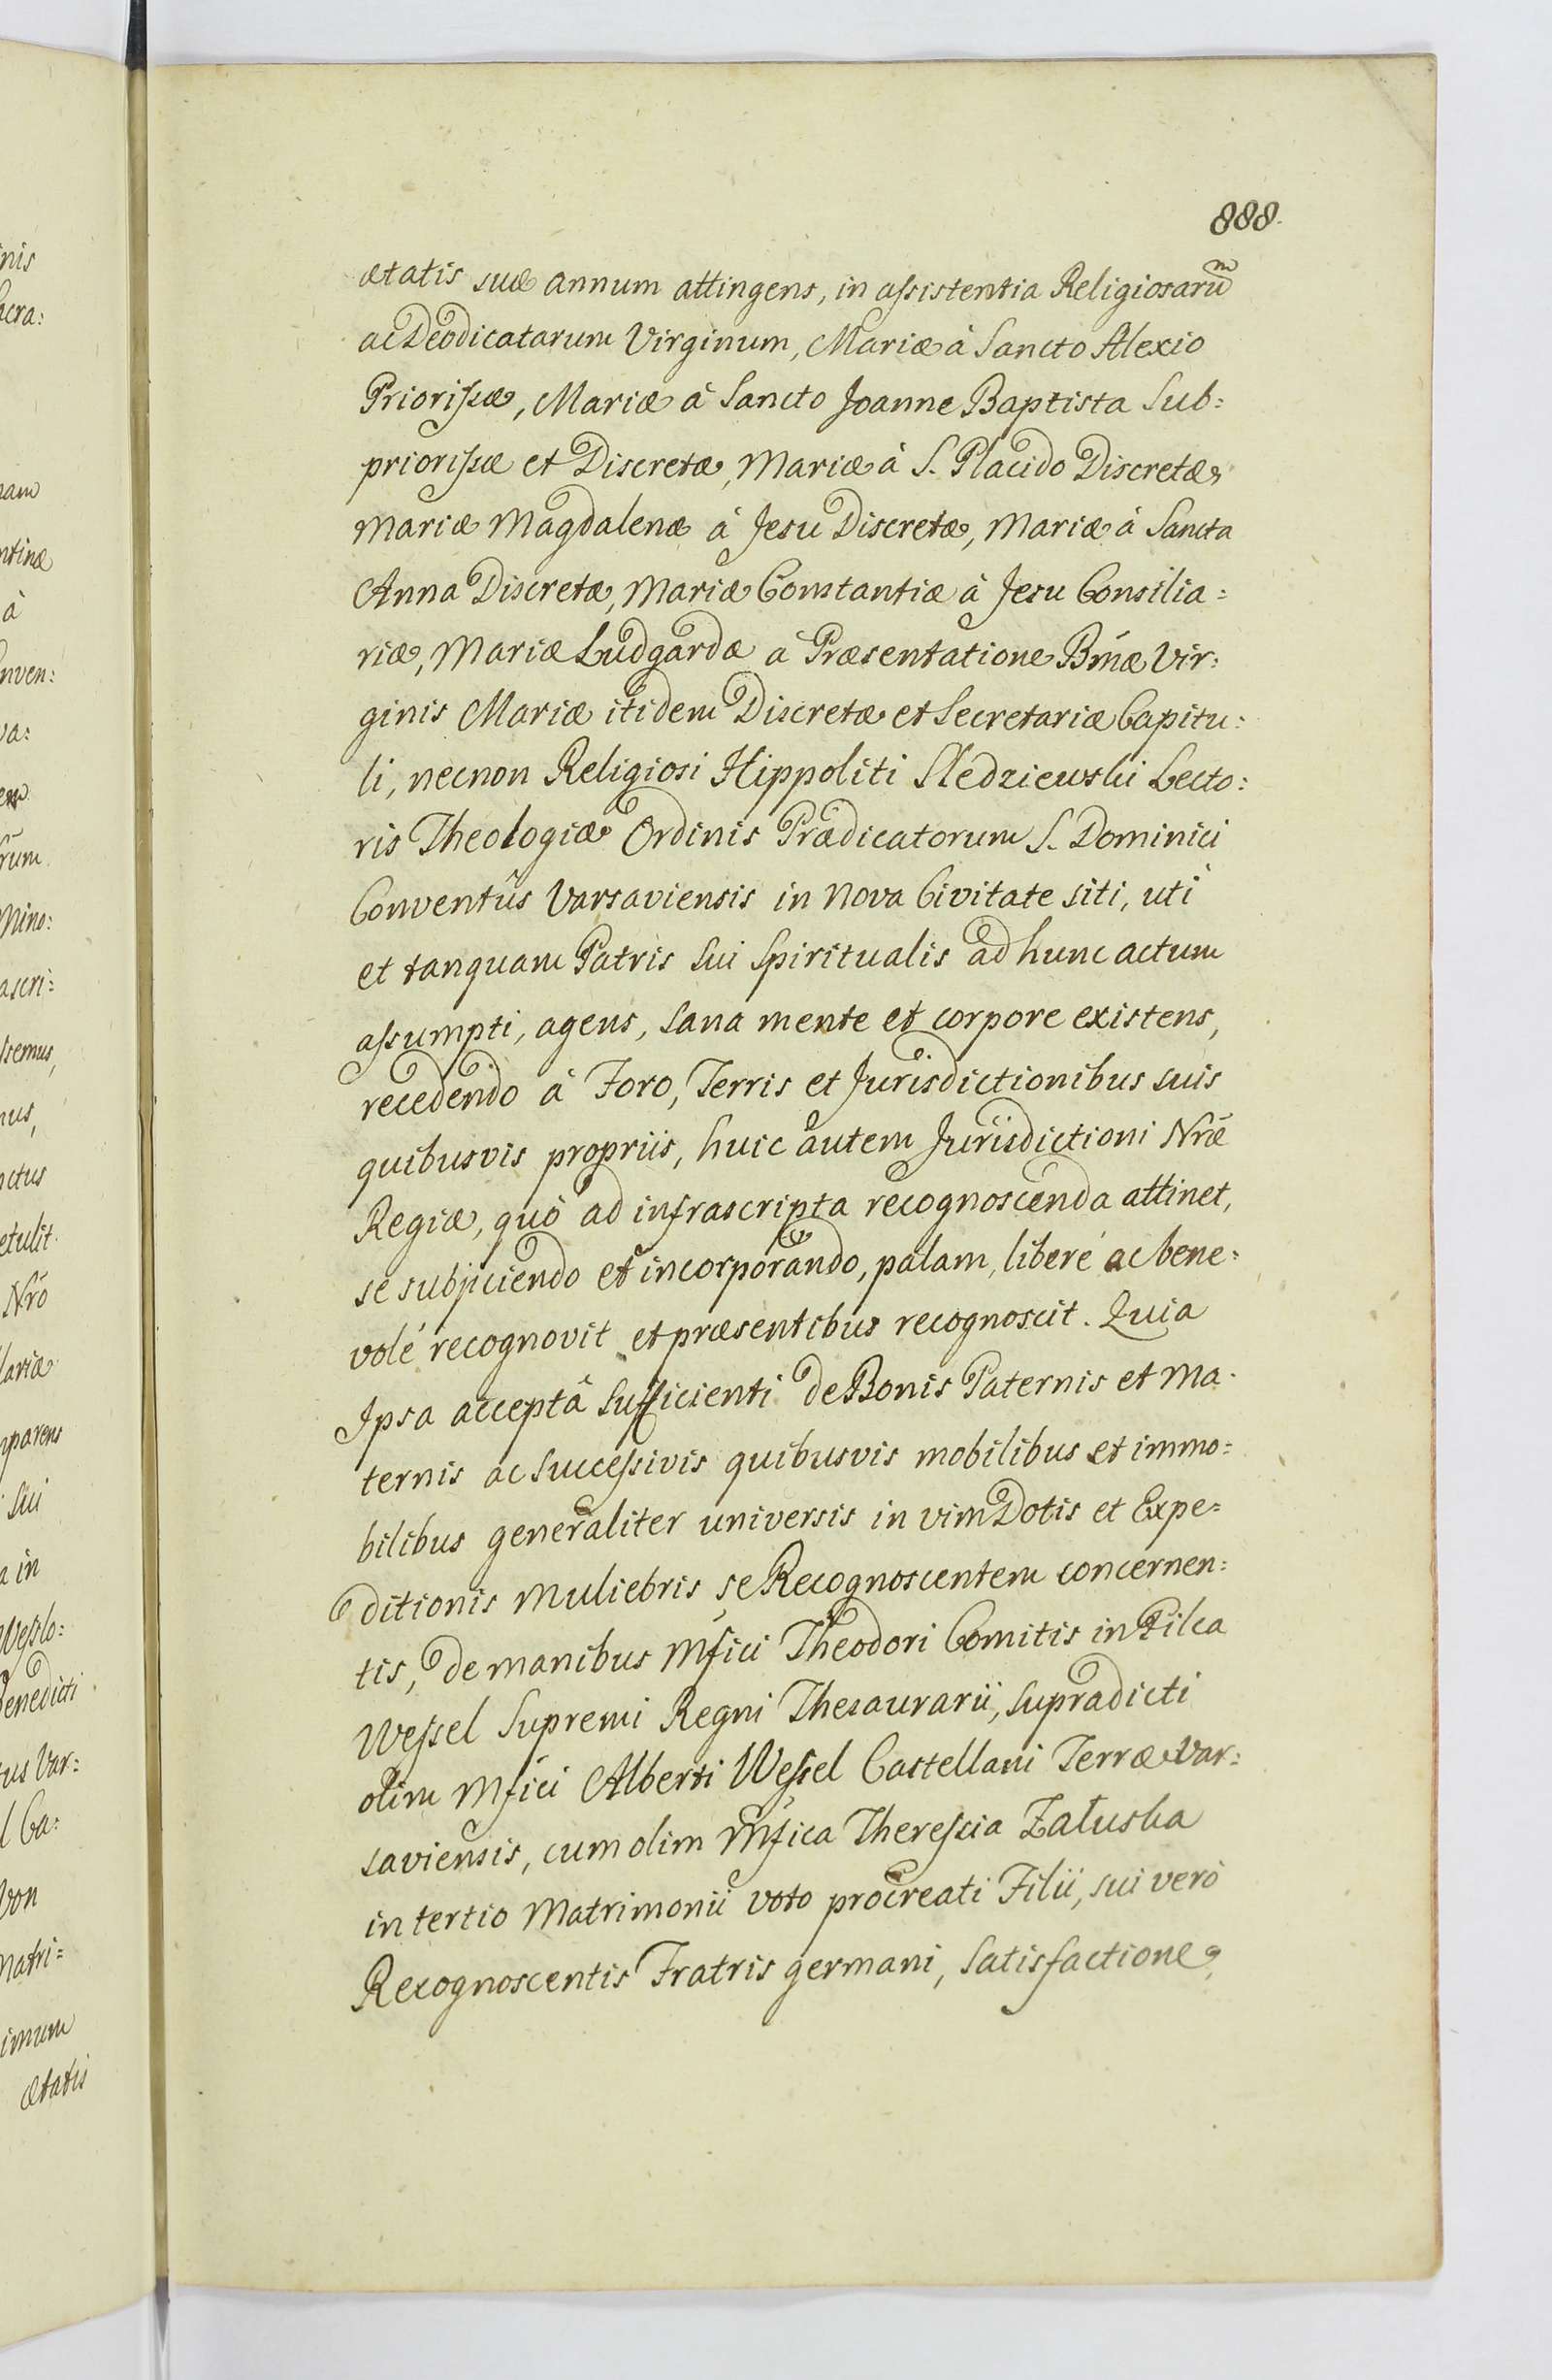 888.
ætatis suæ annum attingens, in assistentia Religiosarum
ac Deodicatarum Virginum, Mariæ à Sancto Alexio
Priorissæ, Mariæ à Sancto Joanne Baptista Sub:
priorissæ et Discretæ, Mariæ à S. Placido Discretæ,
Mariæ Magdalenæ à Jesu Discretæ, Mariæ à Sancta
Anna Discretæ, Mariæ Constantiæ à Jesu Consilia:
riæ, Mariæ Ludgardæ à Præsentatione Bmæ Vir:
ginis Mariæ itidem Discretæ et Secretariæ Capitu:
li, necnon Religiosi Hippoliti Sledziewski Lecto:
ris Theologiæ Ordinis Prædicatorum S. Dominici
Conventûs Varsaviensis in Nova Civitate siti, uti
et tanquam Patris sui spiritualis ad hunc actum
assumpti, agens, sana mente et corpore existens,
recedendo à Foro, Terris et Jurisdictionibus suis
quibusvis propriis, huic autem Jurisdictioni Nræ
Regiæ, quò ad infrascripta recognoscenda attinet,
se subjiciendo et incorporando, palam, liberè ac bene:
volè recognovit et præsentibus recognoscit. Quia
Ipsa acceptâ sufficienti de Bonis Paternis et Ma:
ternis ac successivis quibusvis mobilibus et immo:
bilibus generaliter universis in vim Dotis et Expe:
ditionis Muliebris se Recognoscentem concernen:
tis, de manibus Mfici Theodori Comitis in Pilca
Wessel Supremi Regni Thesaurarii, supradicti
olim Mfici Alberti Wessel Castellani Terræ Var:
saviensis, cum olim Mfica Therescia Załuska
in tertio Matrimonii voto procreati Filii, sui verò
Recognoscentis Fratris germani, satisfactione,
nis
acra:
nam
ntinæ
à
nven:
va:
em
rum
Mino:
ascri:
semus,
nus,
nctus
etulit
Nrô
lariæ
mparens
sui
a in
Wesslo:
Benedicti
tus Var:
l Ca:
von
Matri:
imum
ætatis